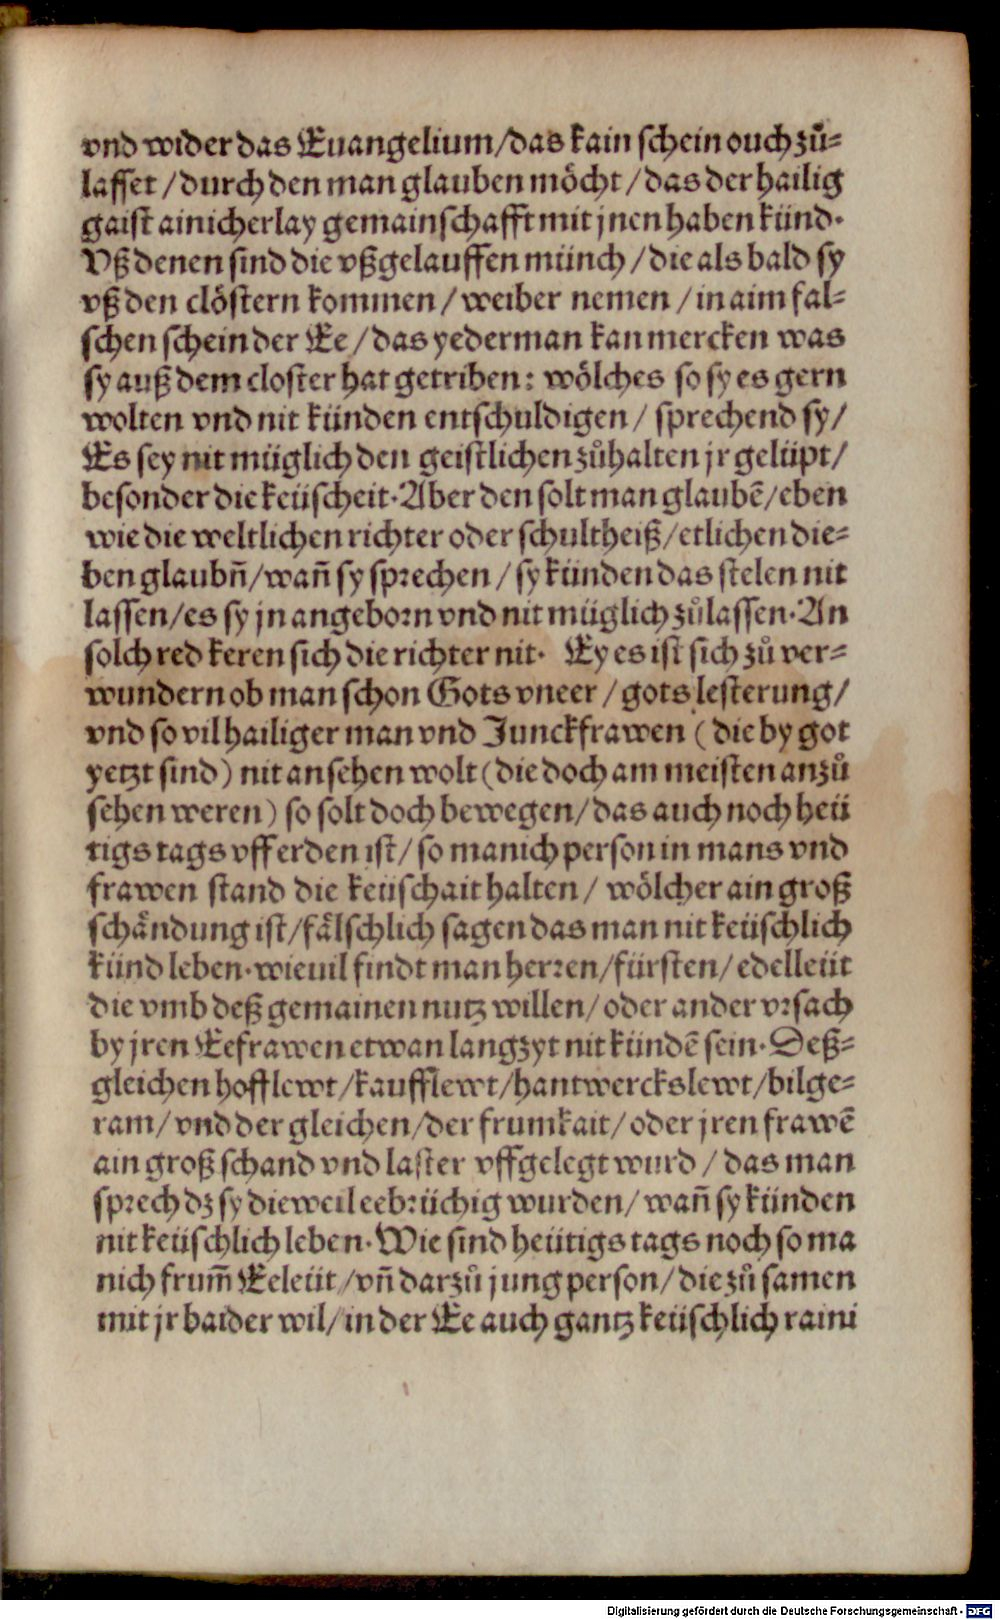 vnd wider das Euangelium/das kain schein ouch zů⸗
lasset/durch den man glauben möcht/das der hailig
gaist ainicherlay gemainschafft mit jnen haben künd.
Vß denen sind die vßgelauffen münch/die als bald sy
vß den clöstern kommen/weiber nemen/in aim fal⸗
schen schein der Ee/das yederman kan mercken was
sy auß dem closter hat getriben: wölches so sy es gern
wolten vnd nit künden entschuldigen/sprechend sy/
Es sey nit müglich den geistlichen zůhalten jr gelüpt/
besonder die keüscheit. Aber den solt man glaubē/eben
wie die weltlichen richter oder schultheiß/etlichen die⸗
ben glaubñ/wañ sy sprechen/sy künden das stelen nit
lassen/es sy jn angeborn vnd nit müglich zůlassen. An
solch red keren sich die richter nit. Ey es ist sich zů ver⸗
wundern ob man schon Gots vneer/gots lesterung/
vnd so vil hailiger man vnd Junckfrawen (die by got
yetzt sind) nit ansehen wolt (die doch am meisten anzů
sehen weren) so solt doch bewegen/das auch noch heü
tigs tags vff erden ist/so manich person in mans vnd
frawen stand die keüschait halten/wölcher ain groß
schändung ist/fälschlich sagen das man nit keüschlich
künd leben. wieuil findt man herren/fürsten/edelleüt
die vmb deß gemainen nutz willen/oder ander vrsach
by jren Eefrawen etwan lang zyt nit kündē sein. Deß⸗
gleichen hofflewt/kaufflewt/hantwerckslewt/bilge⸗
ram/vnd der gleichen/der frumkait/oder jren frawē
ain groß schand vnd laster vffgelegt wurd/das man
sprech dz sy dieweil eebrüchig wurden/wañ sy künden
nit keüschlich leben. Wie sind heütigs tags noch so ma
nich frum̃ Eeleüt/vñ darzů jung person/die zů samen
mit jr baider wil/in der Ee auch gantz keüschlich raini
Digitalisierung gefördert durch die Deutsche Forschungsgemeinschaft - DFG